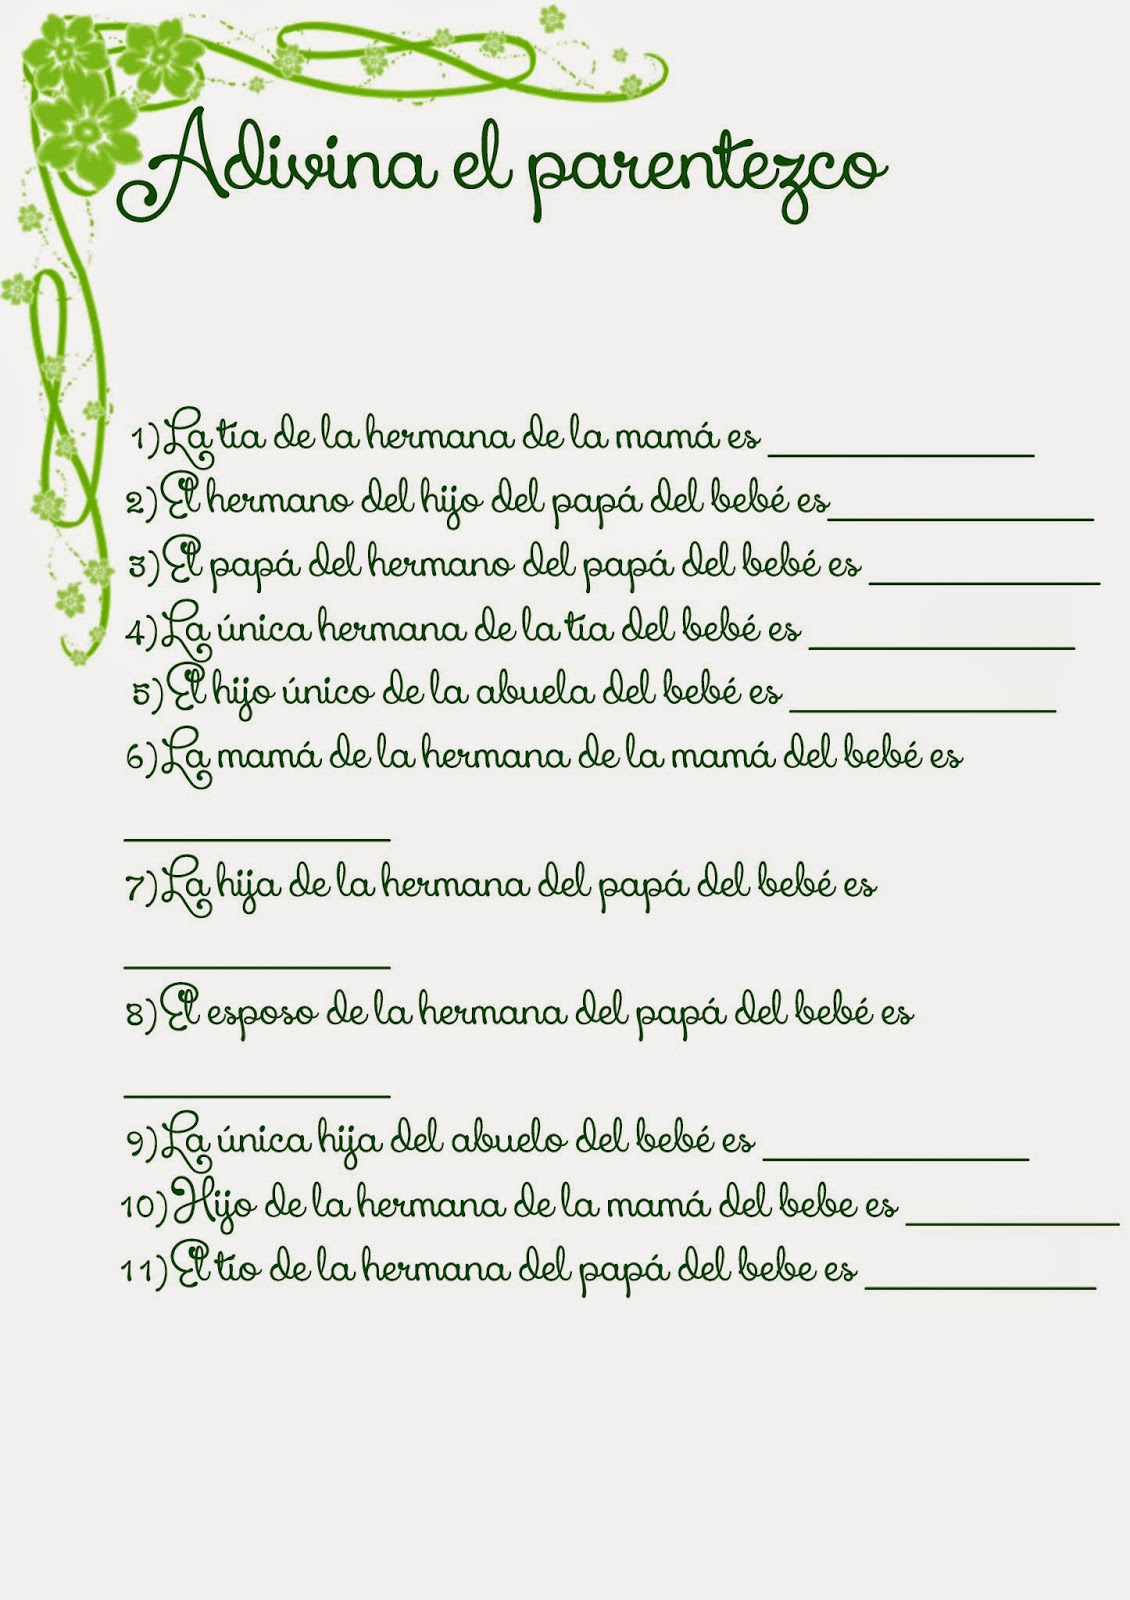 Adivina el parentezco
1)La tía de la hermana de la mamá es ____________
2)El hermano del hijo del papá del bebé es____________
3)El papá del hermano del papá del bebé es ____________
4)La única hermana de la tía del bebé es ____________
5)El hijo único de la abuela del bebé es ____________
6)La mamá de la hermana de la mamá del bebé es
____________
7)La hija de la hermana del papá del bebé es
____________
8)El esposo de la hermana del papá del bebé es
____________
9)La única hija del abuelo del bebé es ____________
10)Hijo de la hermana de la mamá del bebe es ____________
11)El tío de la hermana del papá del bebe es ____________